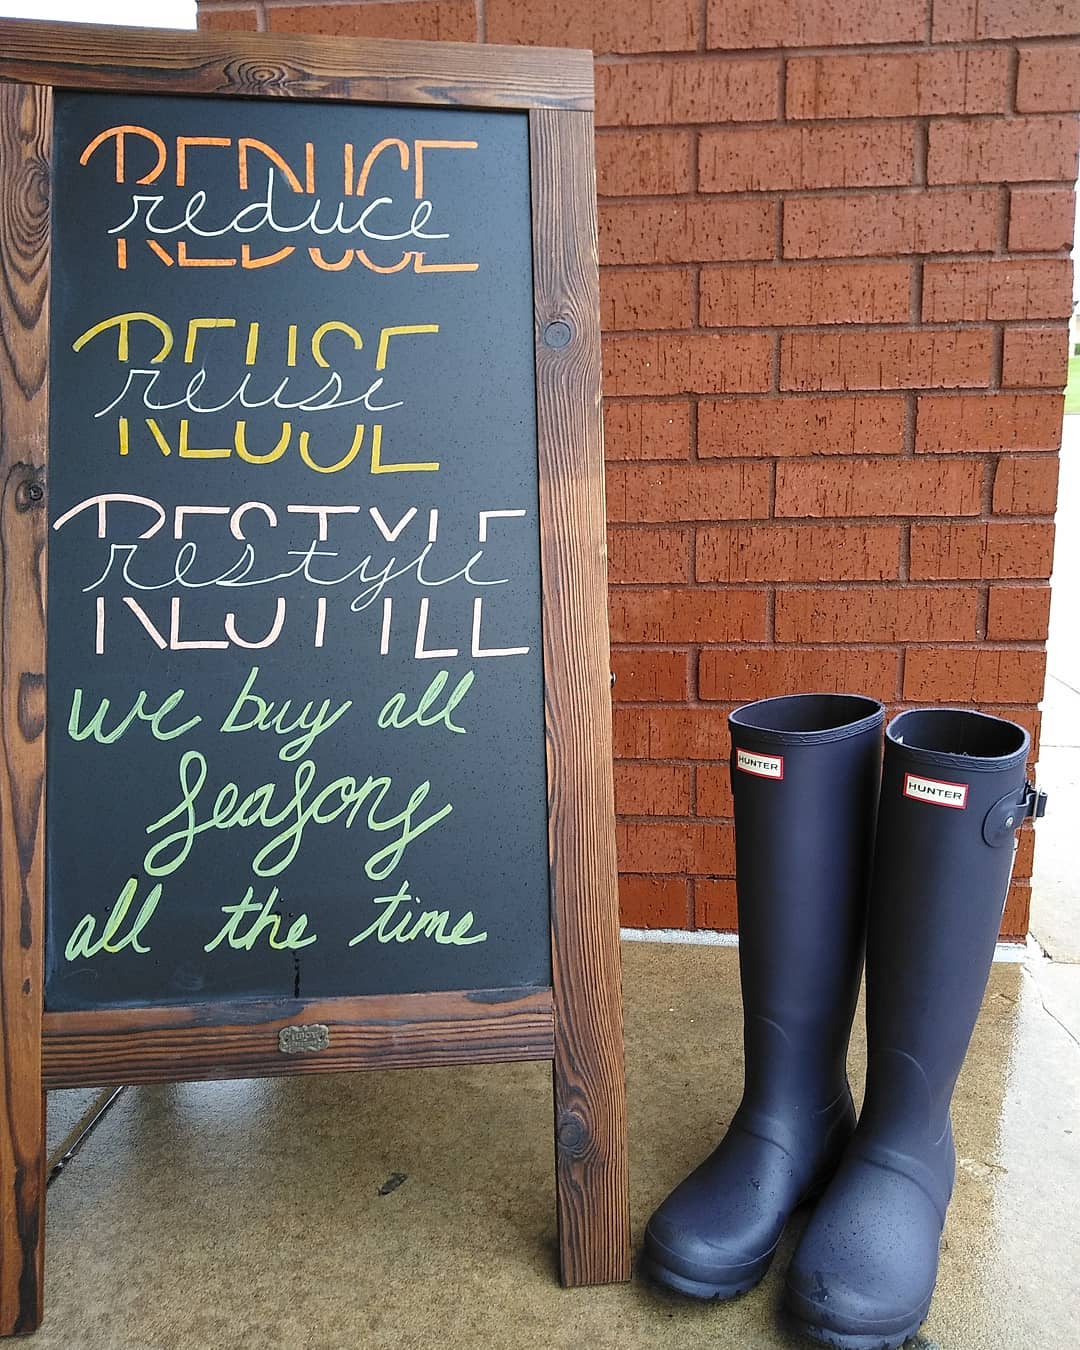 REDUCE
reduce
REUSE
reuse
RESTYLE
restyle
we buy all
seasons
all the time
HUNTER
HUNTER